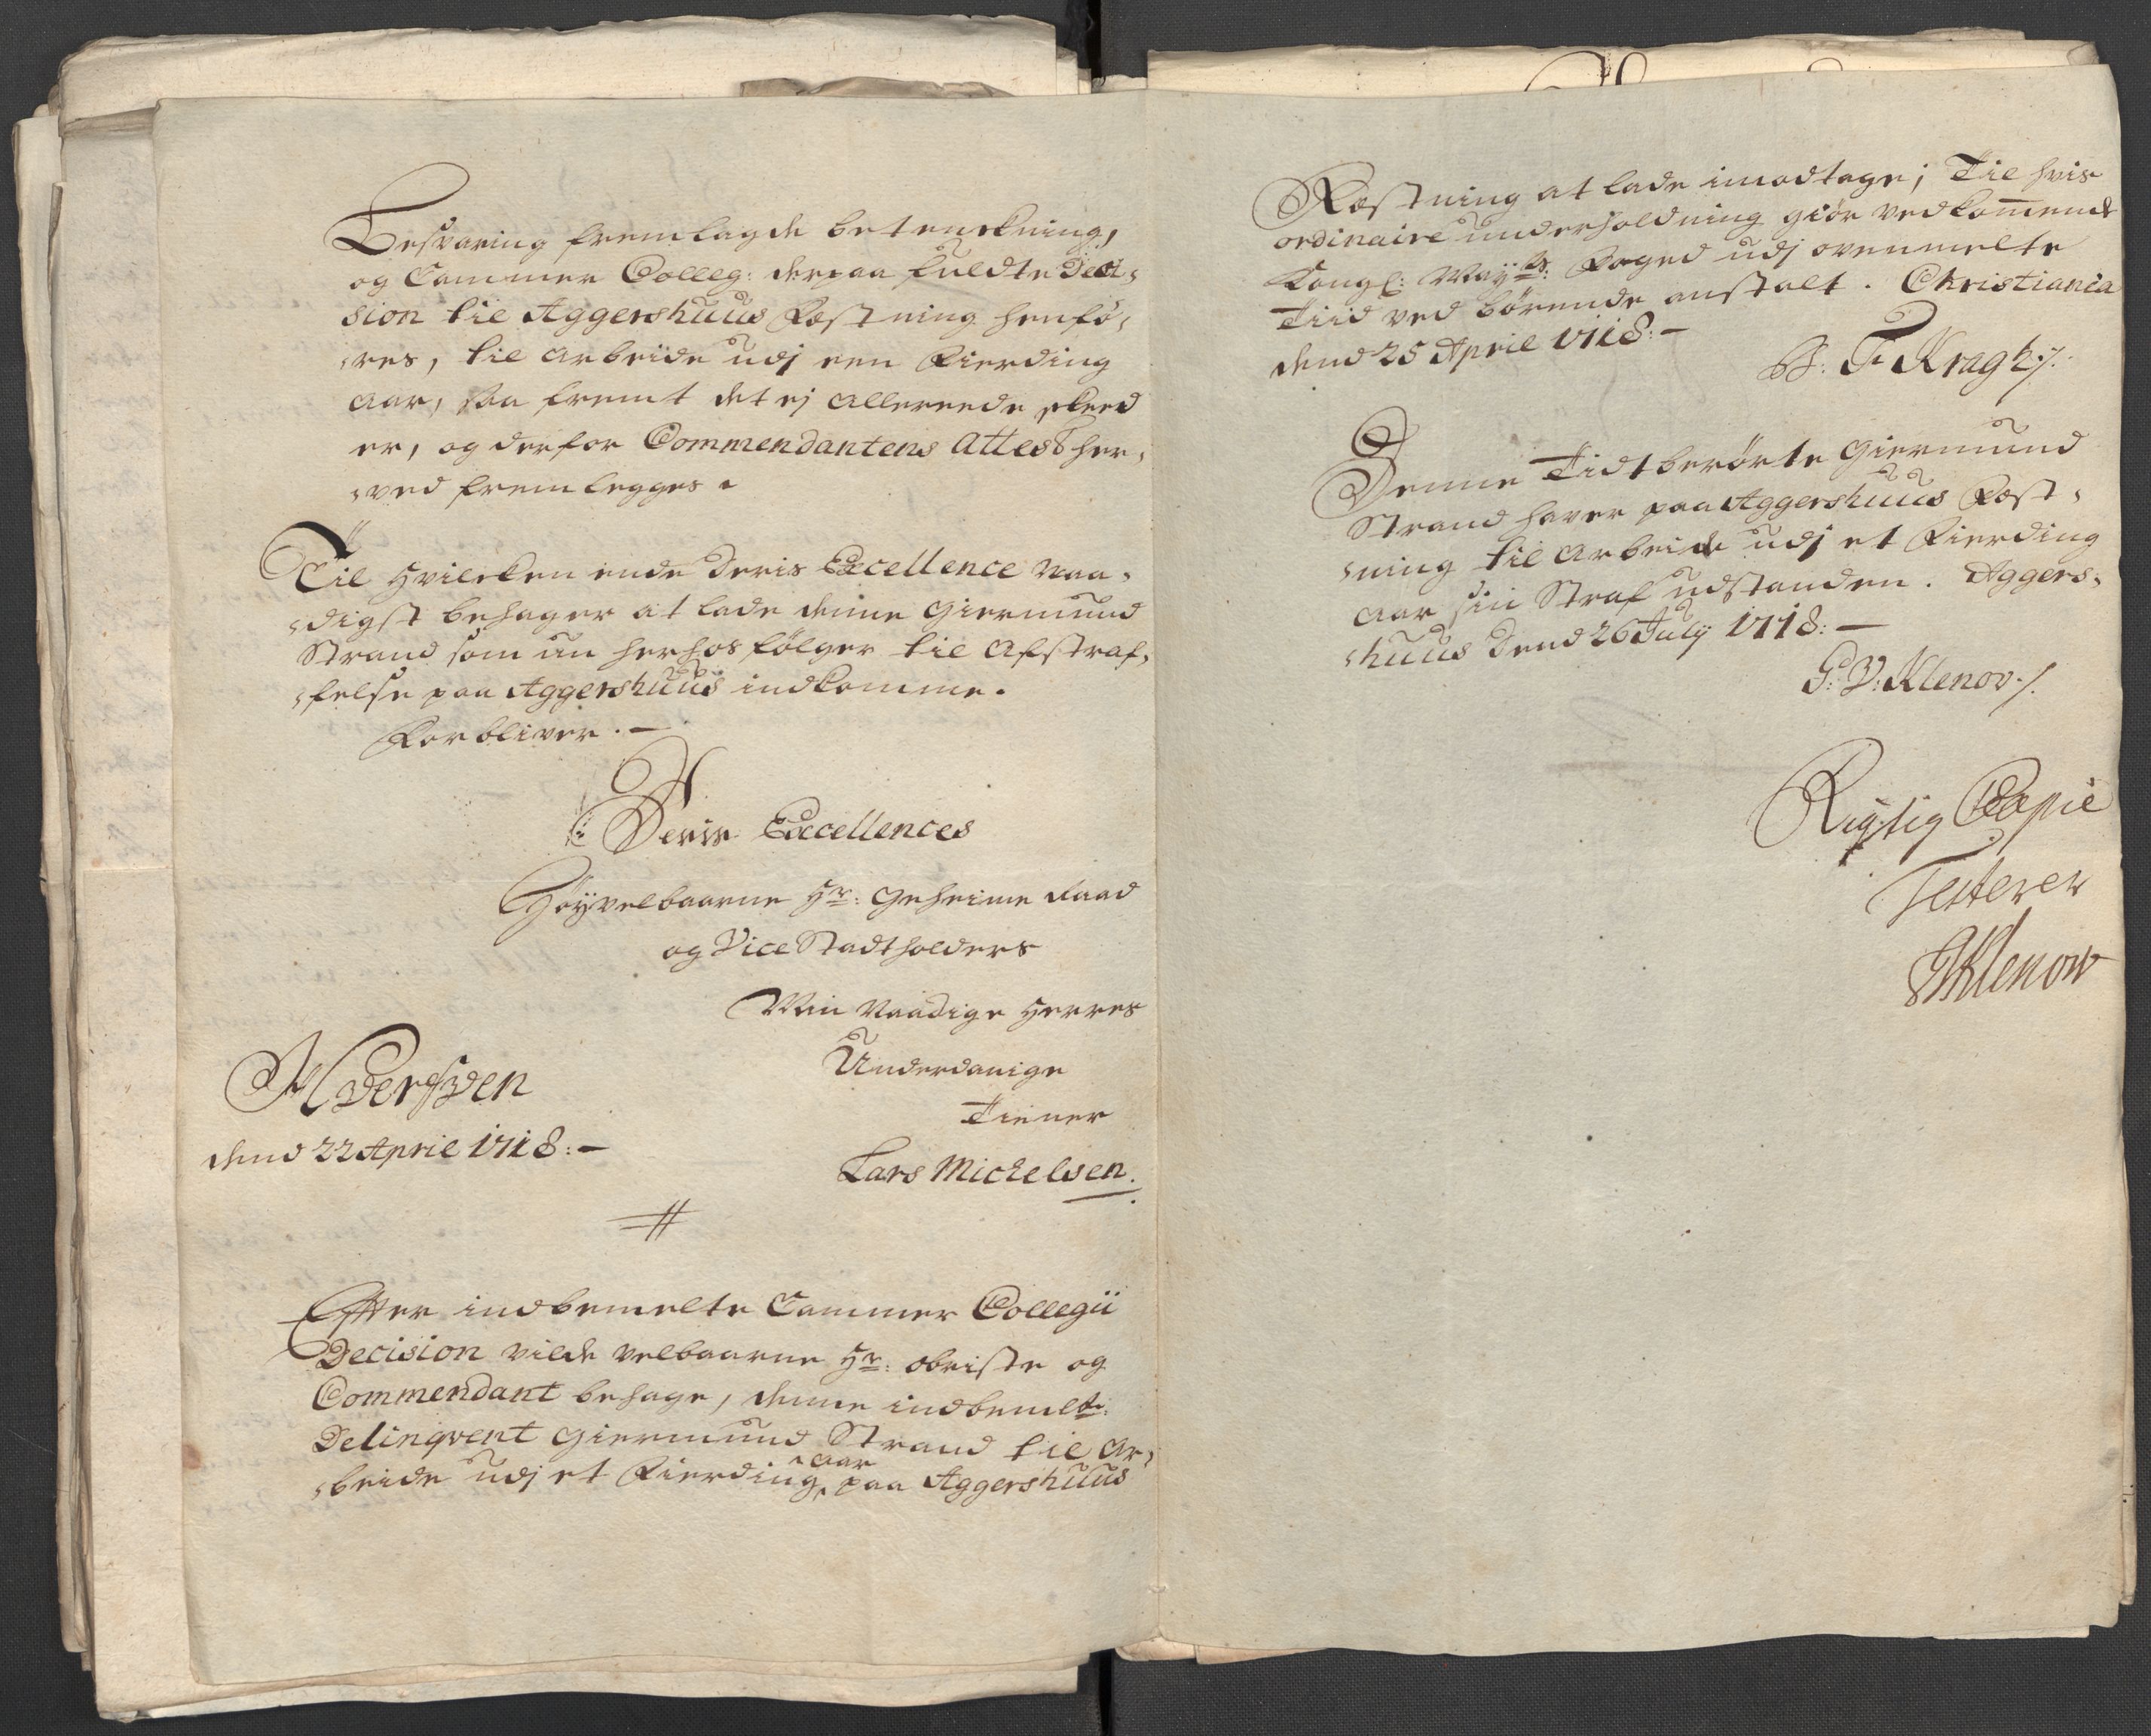 Besvaring fremlagde betenckning,
og Cammer Colleg: derpaa fuldte Deci-
sion til Aggershuus Fæstning henfø-
-res, til arbeide udj een Fierding
aar, saa fremt det ej allereede skeed
er, og derfor Commendantens Attest her-
-ved fremlegges.
Til hvilcken ende Deris Excellence Naa-
-digst behager at lade denne Giermund
Strand som nu herhos følger til afstraf-
-felse paa Aggershuus indkomme.
Forbliver. -
Deris Excellences
Høyvelbaarne Hr: Geheime Raad
og Vice Stadtholders
Min Naadige Herres
Underdanige
Tiener
dend 22 April 1718: -
Lars Michelsen.
Efter indbemelte Cammer Collegii
Decision vilde velbaarne Hr: obriste og
Commendant behage, denne indbemelte
Delinqvent Giermund Strand til ar-
-beide udj et Fierding aar paa Aggershuus
Fæstning at lade imodtage; Til hvis
ordinaire underholdning giør vedkommende
Kongl: May:ts: Foged udj ovenmelte
Tiid ved børende anstalt. Christiania
dend 25 April 1718: -
F. Kragh ./.
Denne Tidtberørte Giermund
Strand haver paa Aggershuus Fæst-
-ning til arbeide udj et Fierding
aar sin Straf udstanden. Aggers-
-huus Dend 26 July 1718: -
G: V: Klenov ./.
Rigtig Copie
Testerer
GVKlenow